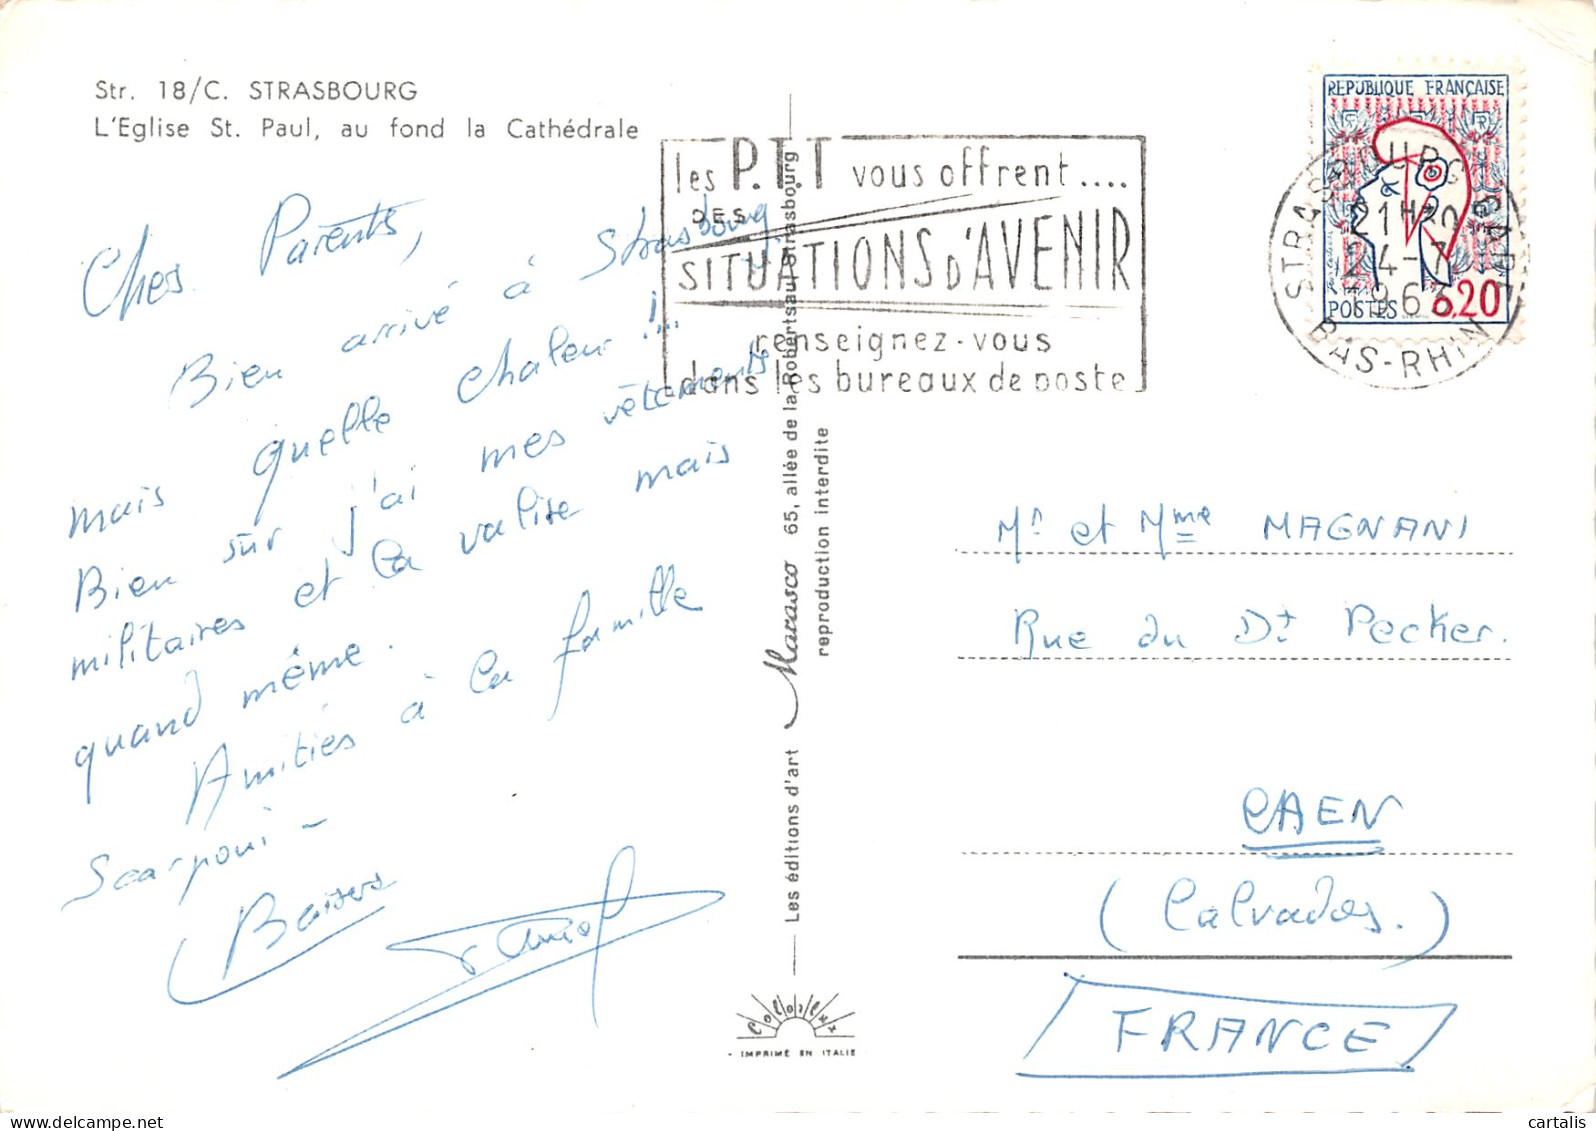 Str. 18/C. STRASBOURG
L'Eglise St. Paul, au fond la Cathédrale
Chers Parents,
Bien arrivé à Strasbourg
mais quelle chaleur !!...
Bien sûr j'ai mes vêtements
militaires et la valise mais
quand même.
Amitiés à la famille
Scarponi -
Baisers
les P.T.T vous offrent....
DES
SITUATIONS D'AVENIR
renseignez-vous
dans les bureaux de poste
REPUBLIQUE FRANÇAISE
POSTES 0,20
STRASBOURG GARE
21H30
24-7
1963
BAS-RHIN
Les éditions d'art Marasco 65, allée de la Robertsau Strasbourg
reproduction interdite
Mr et Mme MAGNANI
Rue du Dt Pecker.
CAEN
(Calvados.)
FRANCE
Colorlux
IMPRIMÉ EN ITALIE
cartalis